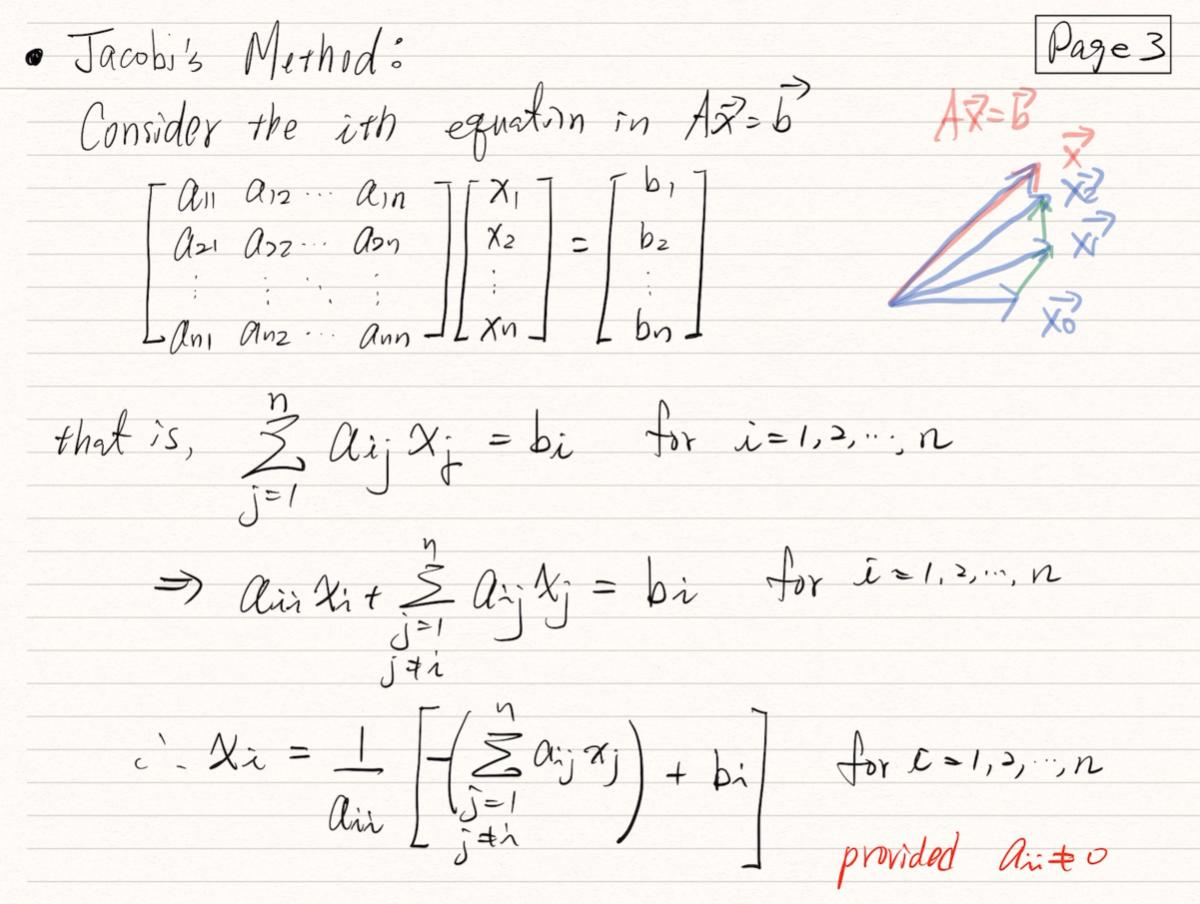 Page 3
• Jacobi's Method:
Consider the ith equation in Ax⃗ = b⃗
Ax⃗ = b⃗
x⃗
x⃗2
x⃗1
x⃗0
[a11 a12 ⋯ a1n] [x1] = [b1]
[a21 a22 ⋯ a2n] [x2] = [b2]
[⋮ ⋮ ⋱ ⋮] [⋮] [⋮]
[an1 an2 ⋯ ann] [xn] = [bn]
that is, ∑_{j=1}^{n} aij xj = bi for i=1,2,⋯,n
⇒ aii xi + ∑_{j=1, j≠i}^{n} aij xj = bi for i=1,2,⋯,n
∴ xi = 1/aii [-(∑_{j=1, j≠i}^{n} aij xj) + bi] for i=1,2,⋯,n
provided aii≠0